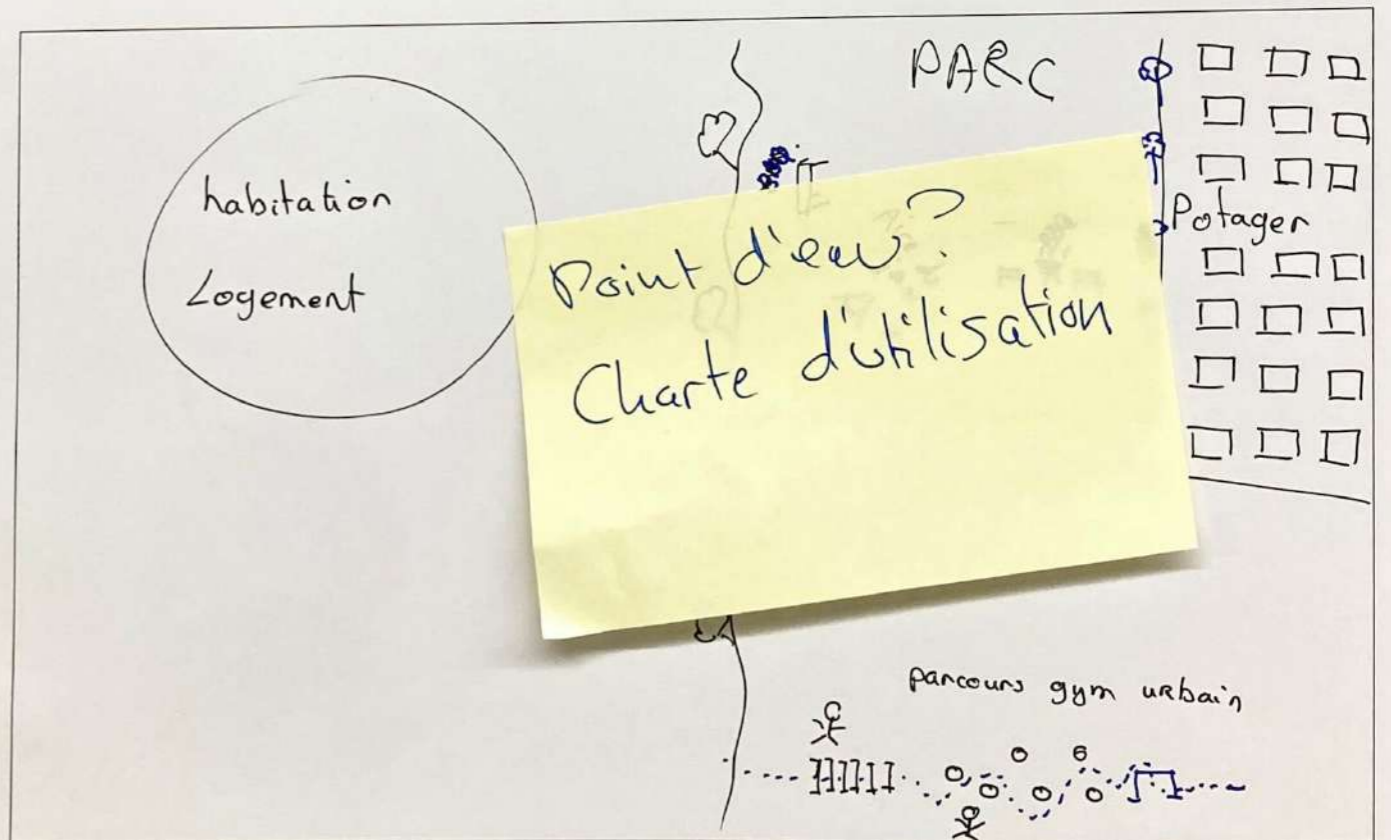 PARC
habitation
Logement
Potager
Point d'eau?
Charte d'utilisation
parcours gym urbain